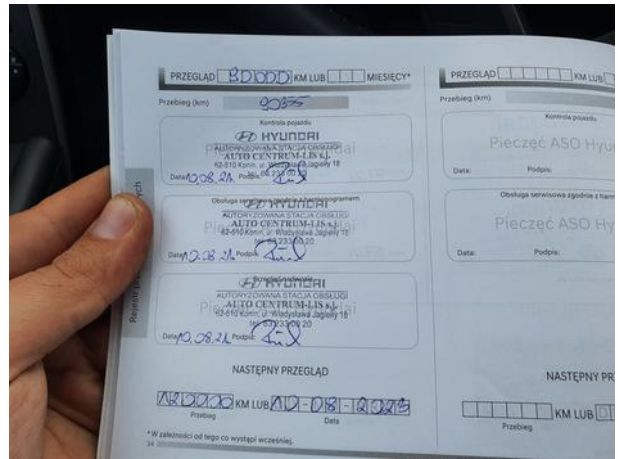 PRZEGLĄD KM LUB MIESIĘCY*
Przebieg (km) 90355
Kontrola pojazdu
HYUNDAI
AUTORYZOWANA STACJA OBSŁUGI
AUTO CENTRUM-LIS s.j.
62-510 Konin, ul. Władysława Jagiełły 18
tel. 63 233 00 20
Data: 10.08.21. Podpis:
Obsługa serwisowa zgodnie z harmonogramem
HYUNDAI
AUTORYZOWANA STACJA OBSŁUGI
AUTO CENTRUM-LIS s.j.
62-510 Konin, ul. Władysława Jagiełły 18
tel. 63 233 00 20
Data: 10.08.21. Podpis:
HYUNDAI
AUTORYZOWANA STACJA OBSŁUGI
AUTO CENTRUM-LIS s.j.
62-510 Konin, ul. Władysława Jagiełły 18
tel. 63 233 00 20
Data: 10.08.21. Podpis:
NASTĘPNY PRZEGLĄD
120000 KM LUB 10-08-2023
Przebieg Data
*W zależności od tego co wystąpi wcześniej.
34
PRZEGLĄD KM LUB
Przebieg (km)
Kontrola pojazdu
Pieczęć ASO Hyu
Data: Podpis:
Obsługa serwisowa zgodnie z harm
Pieczęć ASO Hy
Data: Podpis:
NASTĘPNY PR
KM LUB
Przebieg